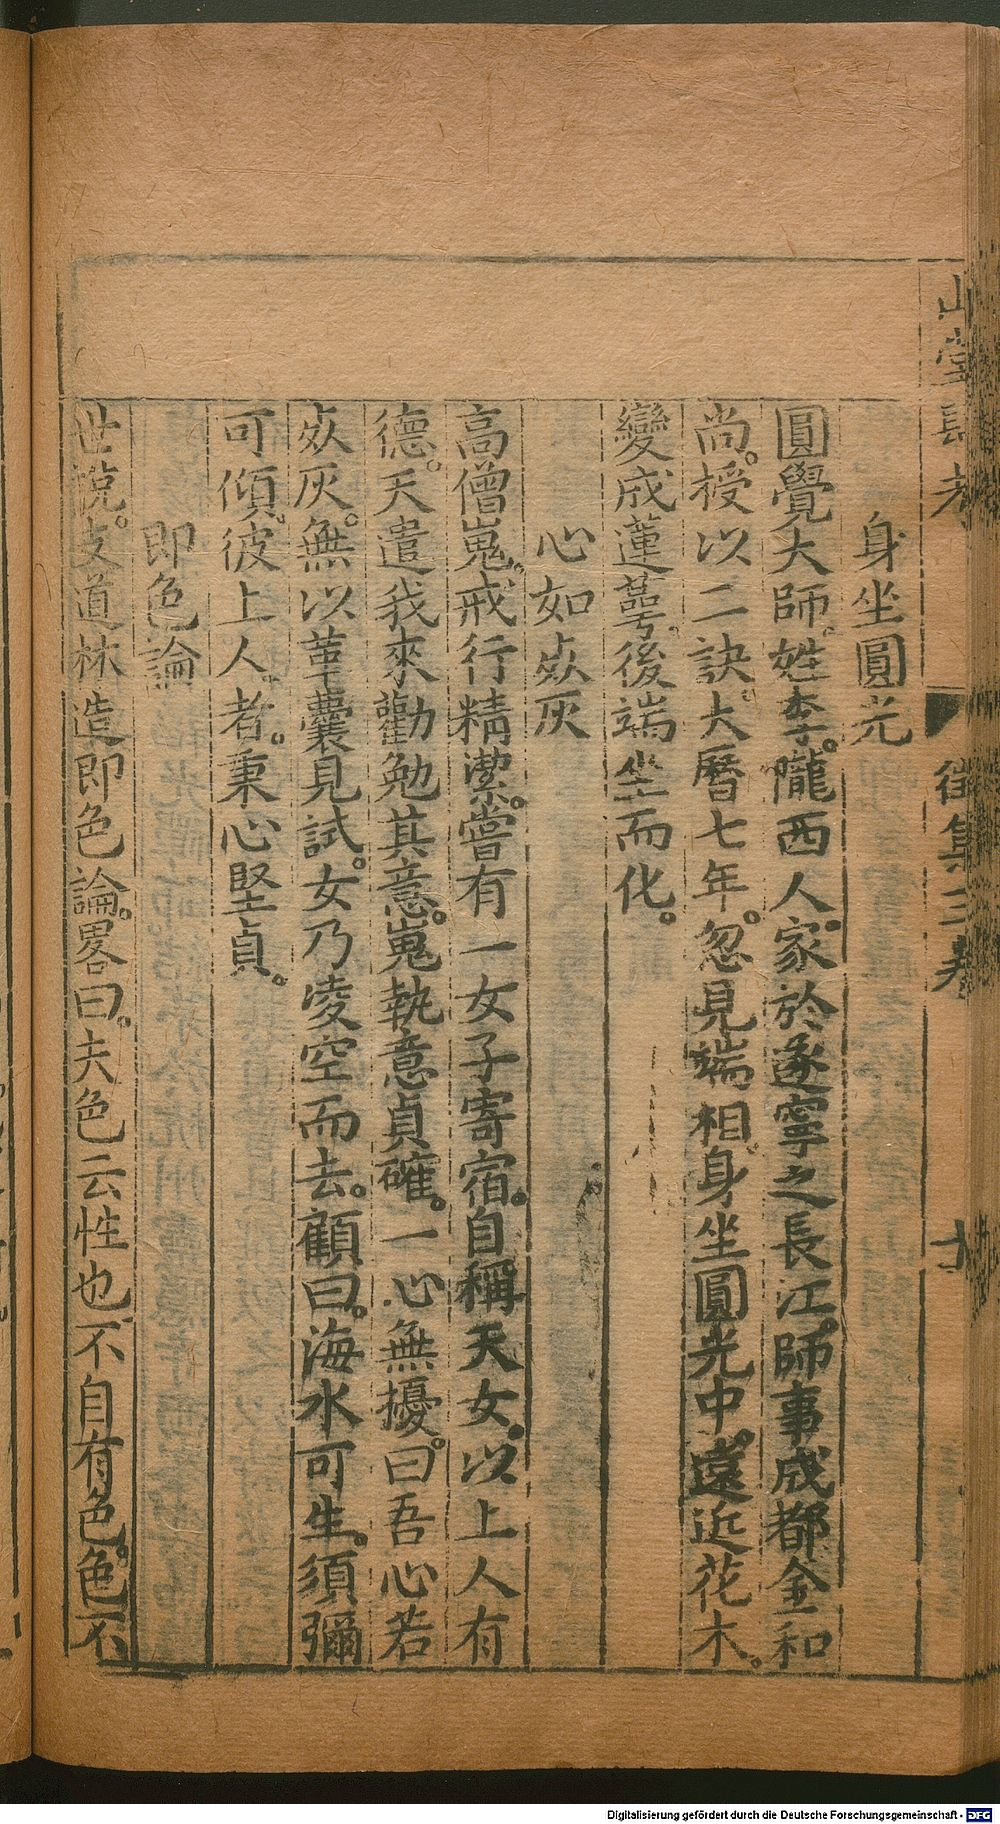 山堂肆考
徵集三卷
十
身坐圓光
圓覺大師。姓李。隴西人。家於遂寧之長江。師事成都金和
尚。授以二訣。大曆七年。忽見端相。身坐圓光中。遠近花木。
變成蓮蕚。後端坐而化。
心如𤆬灰
高僧嵬。戒行精潔。嘗有一女子寄宿。自稱天女。以上人有
德。天遣我來勸勉其意。嵬執意貞確。一心無擾。曰吾心若
𤆬灰。無以革囊見試。女乃凌空而去。顧曰。海水可生。須彌
可傾。彼上人。者。秉心堅貞。
即色論
世說。支道林造即色論。畧曰。夫色云性也。不自有色。色不
Digitalisierung gefördert durch die Deutsche Forschungsgemeinschaft - DFG